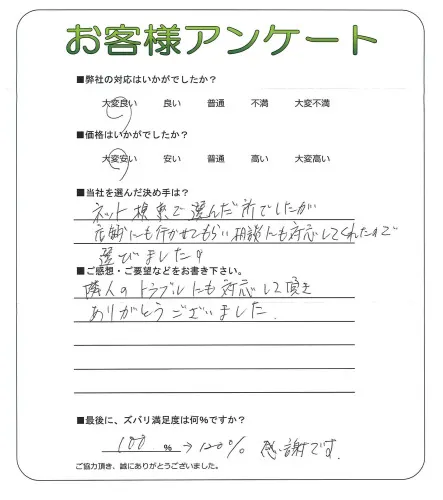 お客様アンケート
■弊社の対応はいかがでしたか?
大変良い 良い 普通 不満 大変不満
■価格はいかがでしたか?
大変安い 安い 普通 高い 大変高い
■当社を選んだ決め手は?
ネット検索で選んだ所でしたが
店舗にも行かせてもらい相談にも対応してくれたので
選びました
■ご感想・ご要望などをお書き下さい。
隣人のトラブルにも対応して頂き
ありがとうございました.
■最後に、ズバリ満足度は何%ですか?
100 % → 120% 感謝です.
ご協力頂き、誠にありがとうございました。